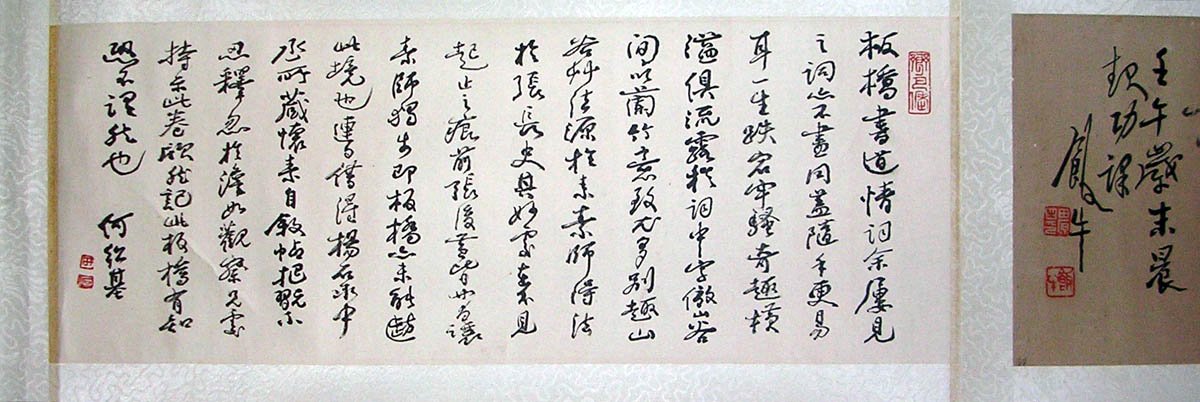 壬午歲末晨
起功課
板橋書道情詞余屢見
之詞亦不盡同蓋隨手更易
耳一生跌宕牢騷奇趣橫
溢俱流露於詞中字倣山谷
間以蘭竹意致尤多別趣山
谷艸法源於素素師得法
於張長史其妙處在不見
起止之痕前張後黃皆讓
素師獨步即板橋亦未能
此境也連日借得楊石泉中
丞所藏懷素自敘帖把翫不
忍釋忽於澹如觀察兄處
持示此卷欣然記此板橋有知
恐不謂然也 何紹基